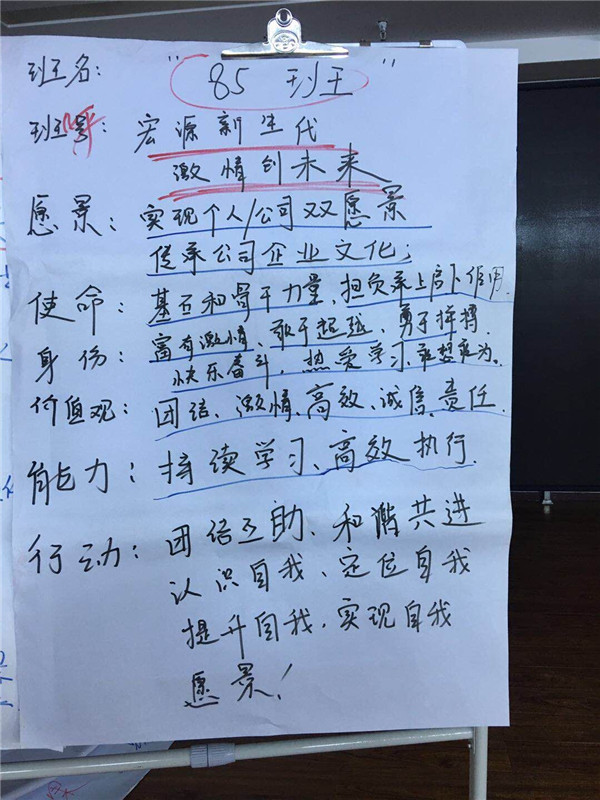 班名： "85 班"
班呼： 宏源新生代
激情创未来
愿景： 实现个人/公司双愿景
传承公司企业文化；
使命： 基石和骨干力量、担负承上启下作用.
身份： 富有激情、敢于超越、勇于拼搏
快乐奋斗、热爱学习、敢想敢为。
价值观： 团结、激情、高效、诚信、责任
能力： 持续学习、高效执行.
行动： 团结互助、和谐共进
认识自我、定位自我
提升自我、实现自我
愿景！